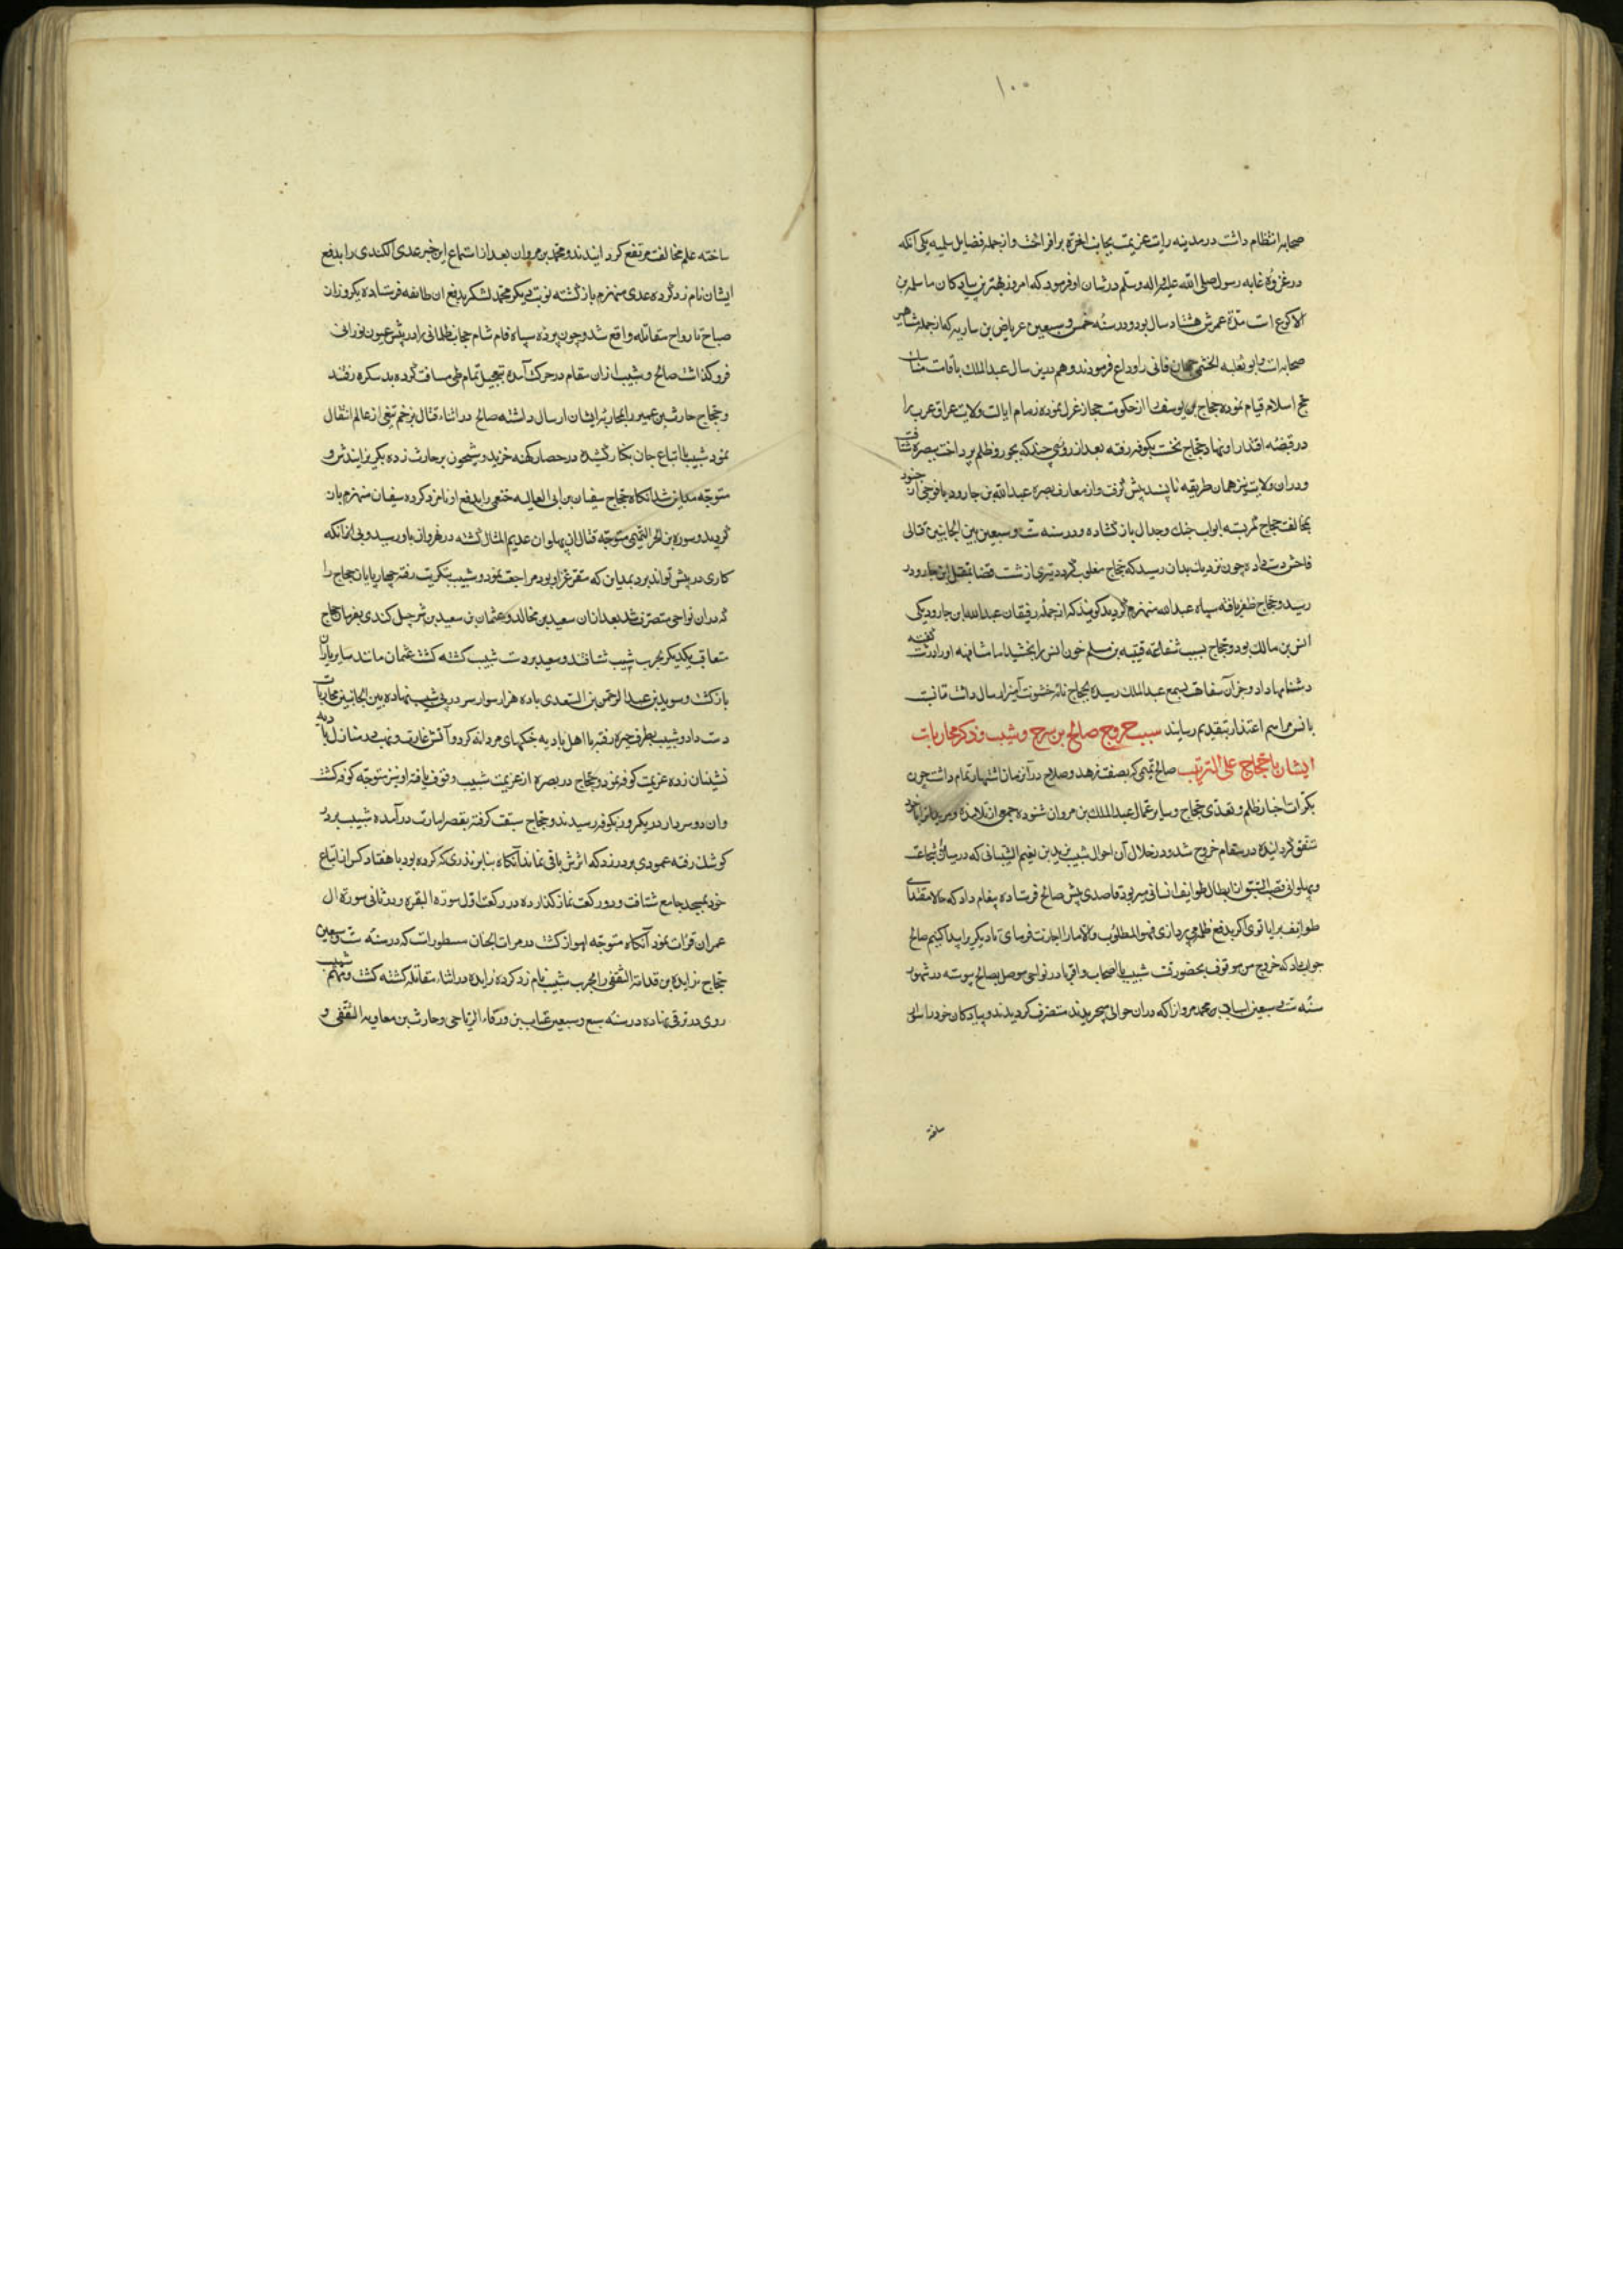 ۱۰۰
صحابه انتظام داشت در مدینه رایت عزیمت بجانب آخرة برافراخت و از جمله فضایل سلمه یکی آنکه
در غزوهٔ غابه رسول صلی الله علیه واله وسلم در شان او فرمود که امروز بهترین پیادکان ما سلمه بن
الاکوع است مدة عمرش هشتاد سال بود و در سنه خمس و سبعین عرباض بن ساریه که از جمله مشاهیر
صحابه است و ابو ثعلبه الخشنی جهان فانی را وداع فرمودند و هم درین سال عبدالملک باقامت مناسک
حج اسلام قیام نموده حجاج بن یوسف را از حکومت حجاز عزل نموده زمام ایالت ولایت عراق عرب را
در قبضه اقتدار او نهاد حجاج نخست بکوفه رفته بعد از روزی چند که بجور و ظلم پرداخت ببصره شتافت
و دران ولایت نیز همان طریقه ناپسند پیش گرفت و از معارف بصره عبدالله بن جارود با فوجی از جنود
بمخالفت حجاج کمر بسته ابواب جنک وجدال باز کشاده و در سنه ست و سبعین بین الجانبین قتالی
فاحش دست داده چون نزدیک بدان رسید که حجاج مغلوب گردد تیری از شست قضا بمقتل ابن جارود
رسید و حجاج ظفر یافته سپاه عبدالله منهزم گردید کویند که از جمله رفیقان عبدالله ابن جارود یکی
انس بن مالک بود و حجاج بسبب شفاعة قتیبه بن مسلم خون انس را بخشید اما مشافهه او را درشت گفته
دشنامها داد و خبر آن سفاهت بسمع عبدالملک رسیده بحجاج نامه خشونت آمیز ارسال داشت تا نسبت
بانس مراسم اعتذار بتقدیم رسانید سبب خروج صالح بن مسرح و شبیب و ذکر محاربات
ایشان با حجاج علی الترتیب صالح تمیمی که بصفت زهد و صلاح در آن زمان اشتهار تمام داشت چون
بکرات اخبار ظلم و تعدی حجاج و سایر عمال عبدالملک بن مروان شنوده جمعی از تلامذه و مریدانرا با خود
متفق گردانیده در مقام خروج شد و در خلال آن احوال شبیب بن یزید بن نعیم الشیبانی که در میدان شجاعت
و پهلوانی قصب السبق از ابطال طوایف انسانی میربود قاصدی پیش صالح فرستاده پیغام داد که حالا مقتدای
طوایف برایا توی اکر بدفع ظلمه می پردازی فهو المطلوب والا ما را اجازت فرمای تا دیگریرا پیدا کنیم صالح
جواب داد که خروج من موقوف بحضور تست شبیب با اصحاب و اقربا در نواحی موصل بصالح پیوسته در شهور
سنه ست و سبعین اسبان محمد مروان را که دران حوالی میچریدند متصرف گردیدند و پیادکان خود را سوار
ساخته
ساخته علم مخالفت مرتفع گردانیدند و محمد بن مروان بعد از استماع این خبر عدی الکندی را بدفع
ایشان نام زد گرده عدی منهزم بازگشته نوبت دیگر محمد لشکر بدفع ان طائفه فرستاده یکروز از
صباح تا رواح مقاتله واقع شد و چون پرده سپاه فام شام حجاب ظلمانی را در پیش عیون نورانی
فروکذاشت صالح و شبیب ازان مقام در حرکت آمده بتعجیل تمام طی مسافت گرده بدسکره رفتند
و حجاج حارث بن عمیر را بمحاربه ایشان ارسال داشته صالح در اثناء قتال بزخم تیغی از عالم انتقال
نمود شبیب با اتباع جان بکنار کشیده در حصار کهنه خزید و شبیخون بر حارث زده بگریزانیدش و
متوجه مداین شد انکاه حجاج سفیان بن ابی العالیه خثعمی را بدفع او نامزد کرده سفیان منهزم باز
گردید و سوره بن الحر التمیمی متوجه قتال ان پهلوان عدیم المثال گشته در نهروان باو رسید و بی ازانکه
کاری در پیش تواند برد بمداین که مقر عز او بود مراجعت نمود و شبیب بتکریت رفته چهارپایان حجاج را
که دران نواحی متصرف شد بعد ازان سعید بن مخالد و عثمان بن سعید بن شرحبیل کندی بفرمان حجاج
متعاقب یکدیگر بحرب شبیب شتافتند و سعید بر دست شبیب کشته کشت عثمان مانند سایر یاران
بازگشت و سوید بن عبدالرحمن السعدی با ده هزار سوار سر در پی شبیب نهاده بین الجانبین محاربات
دست داد و شبیب بطرف حیره رفته با اهل بادیه جنگهای مردانه کرد و آتش غارت و نهب در منازل بادیه
نشینان زده عزیمت کوفه نمود و حجاج در بصره از عزیمت شبیب وقوف یافته او نیز متوجه کوفه کشت
وان دو سردار در یکروز بکوفه رسیدند و حجاج سبقت کرفته بقصر امارت درآمده شبیب بر در
کوشک رفته عمودی بر در زد که اثرش باقی ماند آنکاه بنابر نذری که کرده بود با هفتاد کس از اتباع
خود بمسجد جامع شتافت و دو رکعت نماز گذارده در رکعت اول سورة البقره و در ثانی سورة ال
عمران قرائت نمود آنکاه متوجه اهواز کشت در مرات الجنان مسطورات که در سنه ست و سبعین
حجاج زایده بن قدامه الثقفی را بحرب شبیب نام زد کرده زایده در اثناء مقاتله کشته کشت و مهم شبیب
روی در ترقی نهاده در سنه سبع و سبعین عتاب بن ورقاء الریاحی و حارث بن معاویه الثقفی و